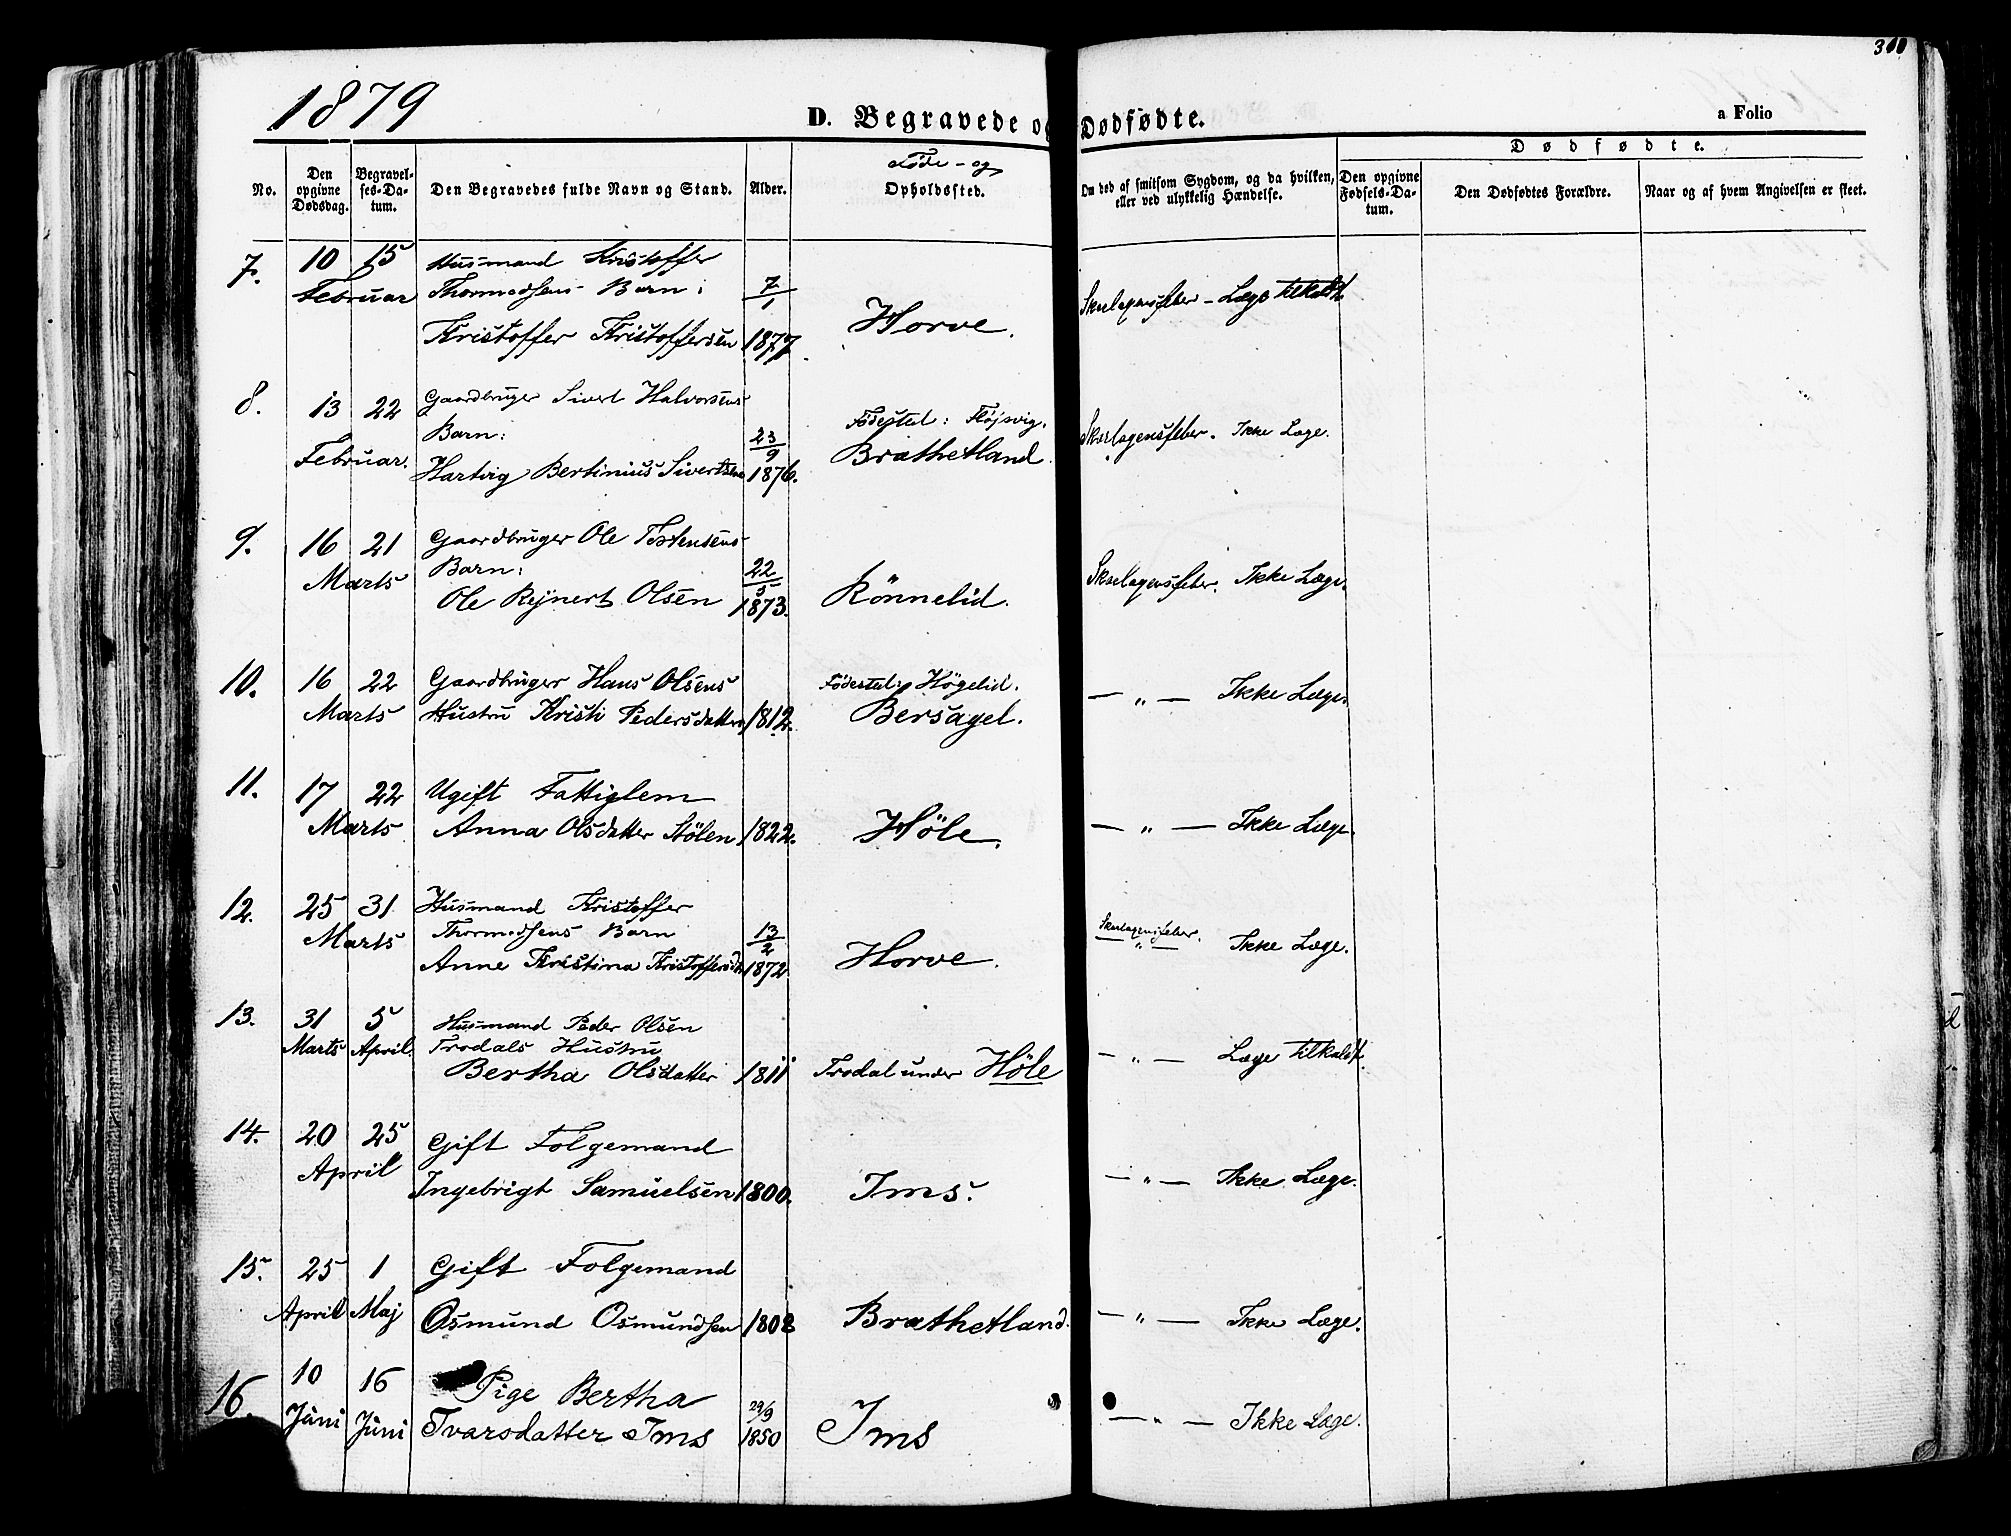 1879
D. Begravede og Dødfødte.
a Folio
Dødfødte.
No.
Den opgivne Dødsdag.
Begravelses-Datum.
Den Begravedes fulde Navn og Stand.
Alder.
Føde- og
Opholdssted.
Om død af smitsom Sygdom, og da hvilken, eller ved ulykkelig Hændelse.
Den opgivne Fødsels-Datum.
Den Dødfødtes Forældre.
Naar og af hvem Angivelsen er skeet.
7. 10 15 Husmand Kristoffer
Februar Thormodsens Barn: 7/1 Skarlagensfeber - Læge tilkaldt.
Kristoffer Kristoffersen 1877. Horve.
8. 13 22 Gaardbruger Sivert Halvorsens
Barn: 23/9 Fødested: Fløjsvig. Skarlagensfeber. Ikke Læge.
Februar. Hartvig Bertinius Sivertsen 1876. Brathetland
9. 16 21 Gaardbruger Ole Tostensens
Marts Barn: 22/5 Skarlagensfeber. Ikke Læge.
Ole Rejnert Olsen 1873. Rönnelid.
10. 16 22 Gaardbruger Hans Olsens Fødested: Høgelid. — „ — Ikke Læge.
Marts Hustru Kristi Pedersdatter 1812. Bersagel.
11. 17 22 Ugift Fattiglem
Marts Anna Olsdatter Stölen 1822. Höle. — „ — Ikke Læge.
12. 25 31 Husmand Kristoffer
Marts Thormodsens Barn 13/2 Skarlagensfeber. — „ — Ikke Læge.
Anne Kristina Kristoffersd. 1872. Horve.
13. 31 5 Husmand Peder Olsen
Marts April. Trodals Hustru — „ — Læge tilkaldt.
Bertha Olsdatter 1811 Trodal under Höle
14. 20 25 Gift Folgemand
April Ingebrigt Samuelsen 1800. Ims. — „ — Ikke Læge.
15. 25 1 Gift Folgemand
April Maj Osmund Osmundsen 1808 Brathetland. — „ — Ikke Læge.
16. 10 16 Pige Bertha 29/9
Juni Juni Ivarsdatter Ims 1850 Ims — „ — Ikke Læge.